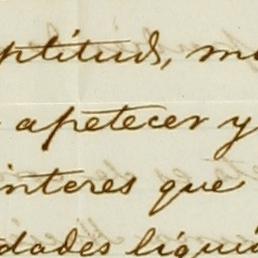 aptitud, m
apetecer y
interes que
dades liqui